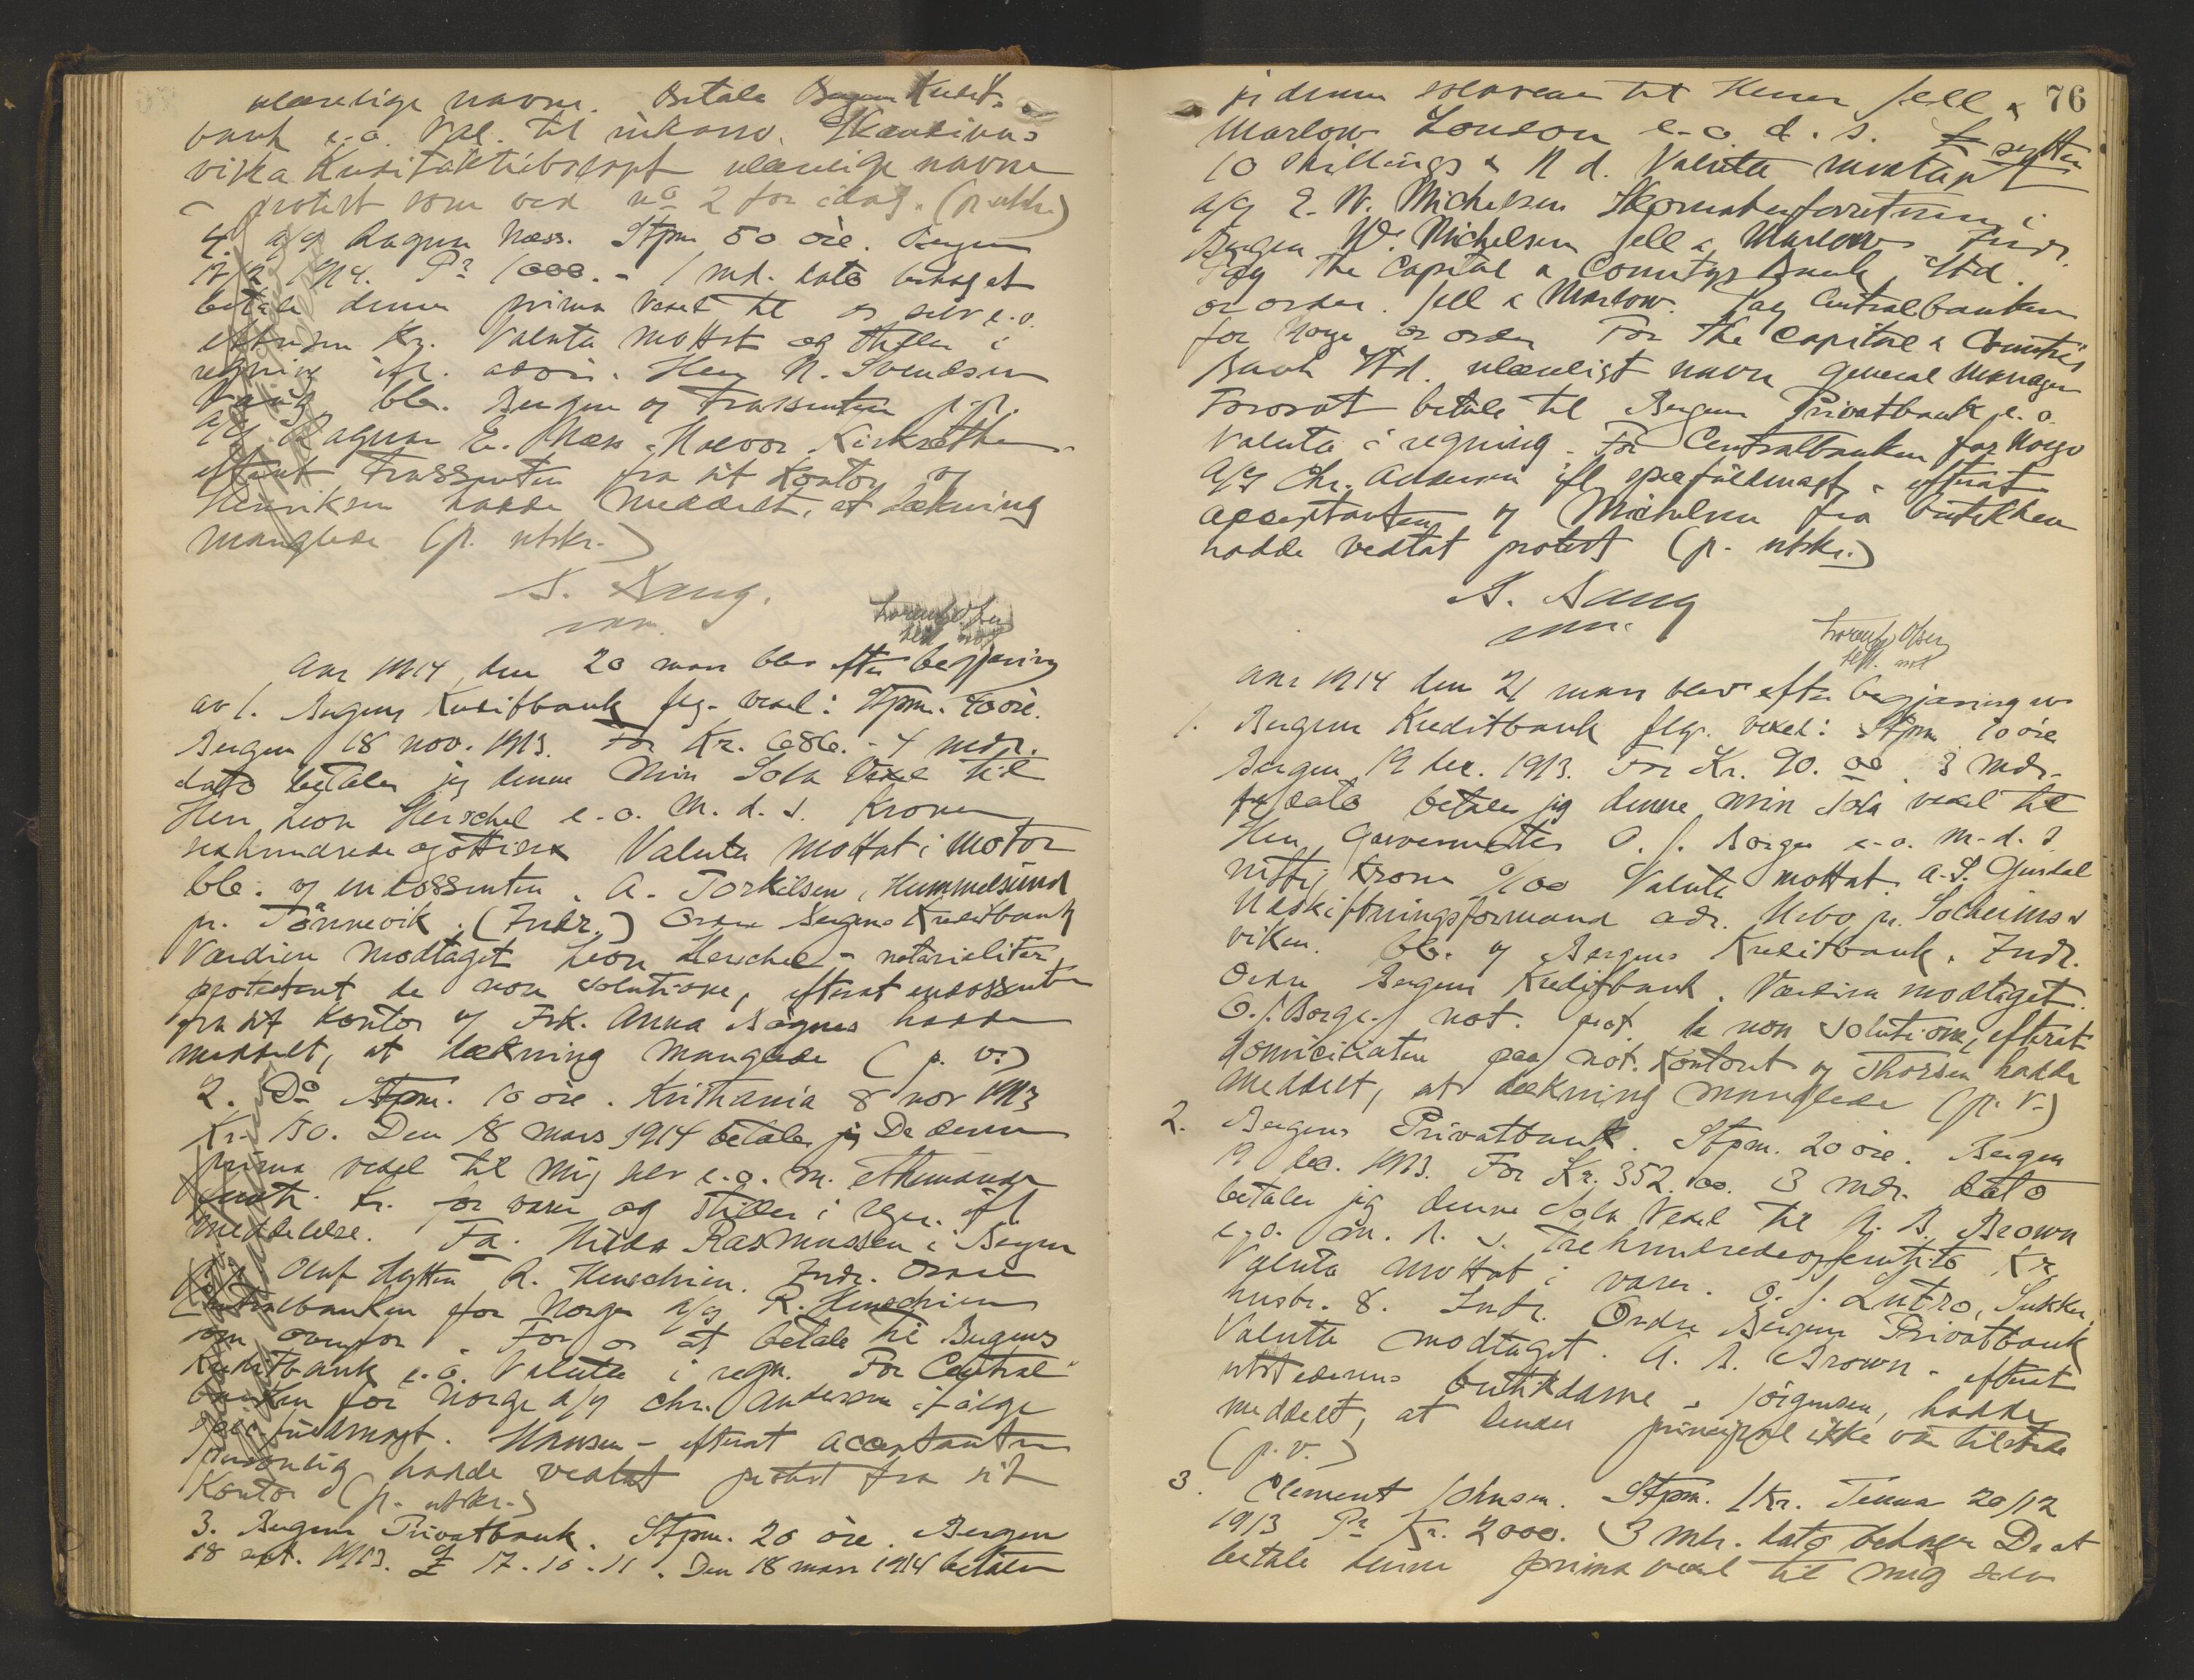 ulæselige navne. Betale Bergens Kredit-
bank e.o. Val. til inkasso. Skandina-
viska Kreditaktiebolaget ulæselige navne
- protest som ved no 2 for idag. (p. utskr.)
4. a/g Ragnar Næss. Stpm 50 øre. Bergen
17/2 1914. Pr 1000.- 1 md. dato behag at
betale denne prima vexel til os selv e.o.
ettusen Kr. Valuta mottat og stilles i
regning ifl. advis. Herr N. Svendsen
blb. Bergen og Trassenten p.p.
a/g Ragnar E. Næss. Halvor
efterat Trassenten fra sit Kontor v/
Henriksen hadde meddelt, at dækning
manglede (p. utskr.)
Aar 1914 den 20 mars blev efter begjæring
av 1. Bergens Kreditbank flg. vexel: Stpm. 40 øre.
Bergen 18 nov. 1913. For Kr. 686.- 4 mdr.
dato betaler jeg denne Min Sola Vexel til
Herr Leon Herschel e.o. M. d. S. Kroner
sekshundrede og ottisex Valuta Mottat i Motor
blb. og endossenten. A. Torkilsen, Hummelsund
pr. Tönnevik. (Indr.) Ordre Bergens Kreditbank
Værdien modtaget Leon Herschel - notarialiter
protestert de non solutione, efterat endossenten
fra sit Kontor v/ Frk. Anna hadde
meddelt, at dækning manglede (p. v.)
2. Do Stpm. 10 øre. Kristiania 8 nov 1913
Kr. 150. Den 18 Mars 1914 betaler De denne
prima vexel til Mig selv e.o. m. Ethundrede
Kr. for varer og stilles i regn. ifl.
meddelelse. Fa. Hilda Rasmussen i Bergen
Oluf Hytten R. Henschien. Indr. Ordre
Centralbanken for Norge a/g R. Henschien
som ovenfor For os at betale til Bergens
Kreditbank e.o. Valuta i regn. For Central-
banken for Norge a/g Chr. Andersen ifølge
spec. fuldmagt. Hansen - efterat acceptanten
personlig hadde vedtat protest fra sit
Kontor (p. utskr.)
3. Bergens Privatbank. Stpm. 20 øre. Bergen
18 1913. £ 17.10.11. Den 18 mars 1914 betaler
76
denne solavexel til Herrer Jell &
Marlow London e.o. d. s. £ sytten
10 shillings & 11 d. Valuta mottat
a/g E. W. Michelsen Skomakerforretning i
Bergen W. Michelsen Jell & Marlow Indr.
Pay The Capital & Countys Bank Ltd
or order. Jell & Marlow. Pay Centralbanken
for Norge or order For The Capital & Counties
Bank Ltd. ulæseligt navn General Manager
For os at betale til Bergens Privatbank e.o.
Valuta i regning. For Centralbanken for Norge
a/g Chr. Andersen ifl. spec. fuldmagt - efterat
acceptanten v/ Michelsen fra butikken
hadde vedtat protest (p. utskr.)
Lorentz Olsen
Aar 1914 den 21 mars blev efter begjæring av
1. Bergens Kreditbank flg. vexel: Stpm 10 øre
Bergen 19 dec. 1913. For Kr. 90.00. 3 Mdr.
fra dato betaler jeg denne min Sola vexel til
Herr Garvermester O. J. Borge e.o. M. d. S.
nitti, Kroner 0/00 Valuta mottat. A. S.
Utskiftningsformand adr. Nebo pr. Solheims-
viken. blb. v/ Bergens Kreditbank. Indr.
Ordre Bergens Kreditbank. Værdien modtaget.
O. J. Borge. not. prot. de non solutione, efterat
domiciliaten paa not. Kontort v/ Thorsen hadde
meddelt, at dækning manglede (p. v.)
2. Bergens Privatbank. Stpm. 20 øre. Bergen
19 dec. 1913. For Kr. 352.00. 3 mdr. dato
betaler jeg denne Sola Vexel til A. B. Brown
e.o. m. d. s. Trehundredeogfemtito Kr
Valuta mottat i varer. O. J. Lutro, Sukker
husbr. 8. Indr. Ordre Bergens Privatbank
Valuta modtaget. A. B. Brown - efterat
utstederens butikdame - Jörgensen, hadde
meddelt, at hendes principal ikke var tilstede
(p. v.)
3. Clement Johnsen. Stpm. 1 Kr. Tenna 20/12
1913 Pr Kr. 2000. 3 mdr. dato behager De at
betale denne prima vexel til mig selv